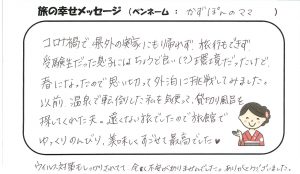 旅の幸せメッセージ（ペンネーム：かずぽんのママ）
コロナ禍で県外の実家にも帰れず、旅行もできず
受験生だった息子にはちょうど良い(?)環境だったけど、
春になったので思い切って外泊に挑戦してみました。
以前、温泉で転倒した私を気使って、貸切り風呂を
探してくれた夫。遠くない旅でしたので旅館で
ゆっくりのんびり、美味しくすごせて最高でした♥
ウイルス対策もしっかりされてて、全く不安がありませんでした。ありがとうございました。